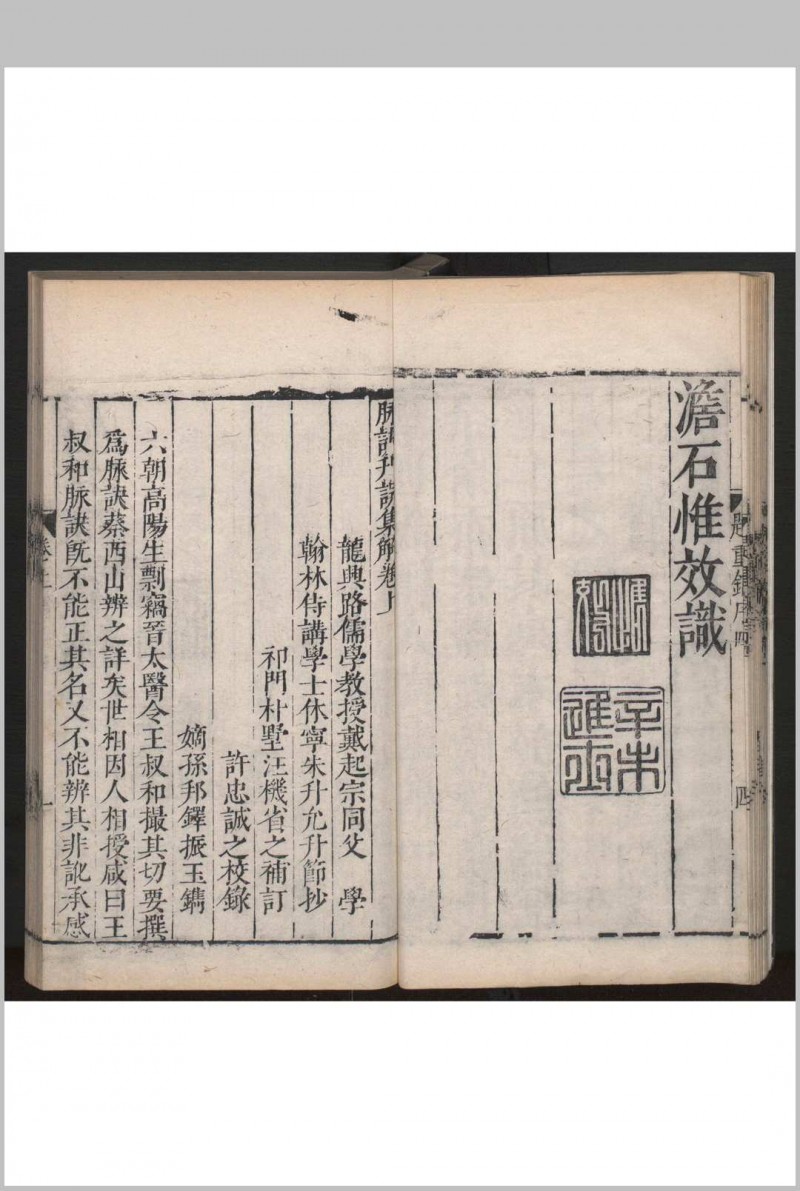 澹石惟效識
辛未
進士
題重鐫序
四
脉訣刋誤集解卷上
龍興路儒學教授戴起宗同父　學
翰林侍講學士休寧朱升允升節抄
祁門朴墅汪機省之補訂
許忠誠之校錄
嫡孫邦鐸振玉鐫
六朝高陽生剽竊晉太醫令王叔和撮其切要撰
爲脉訣蔡西山辨之詳矣世相因人相授咸曰王
叔和脉訣旣不能正其名又不能辨其非訛承惑
卷上
一